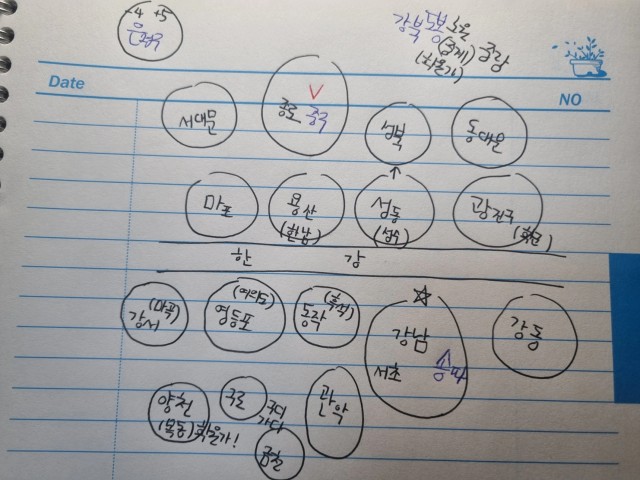 -4 +5
은평구
강북 도봉 노원
(중계) 중랑
(학원가)
Date
NO
V
서대문
종로 중구
성북
동대문
마포
용산
(한남)
성동
(성수)
광진구
한 강
(마곡)
강서
(여의도)
영등포
(흑석)
동작
강남
서초 송파
강동
양천
(목동) 학원가!
구로
관악
금천